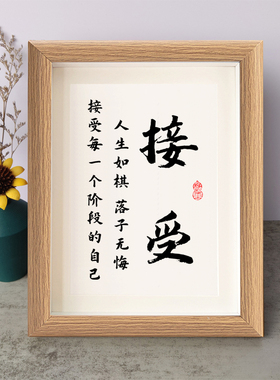 接受
人生如棋 落子无悔
接受每一个阶段的自己